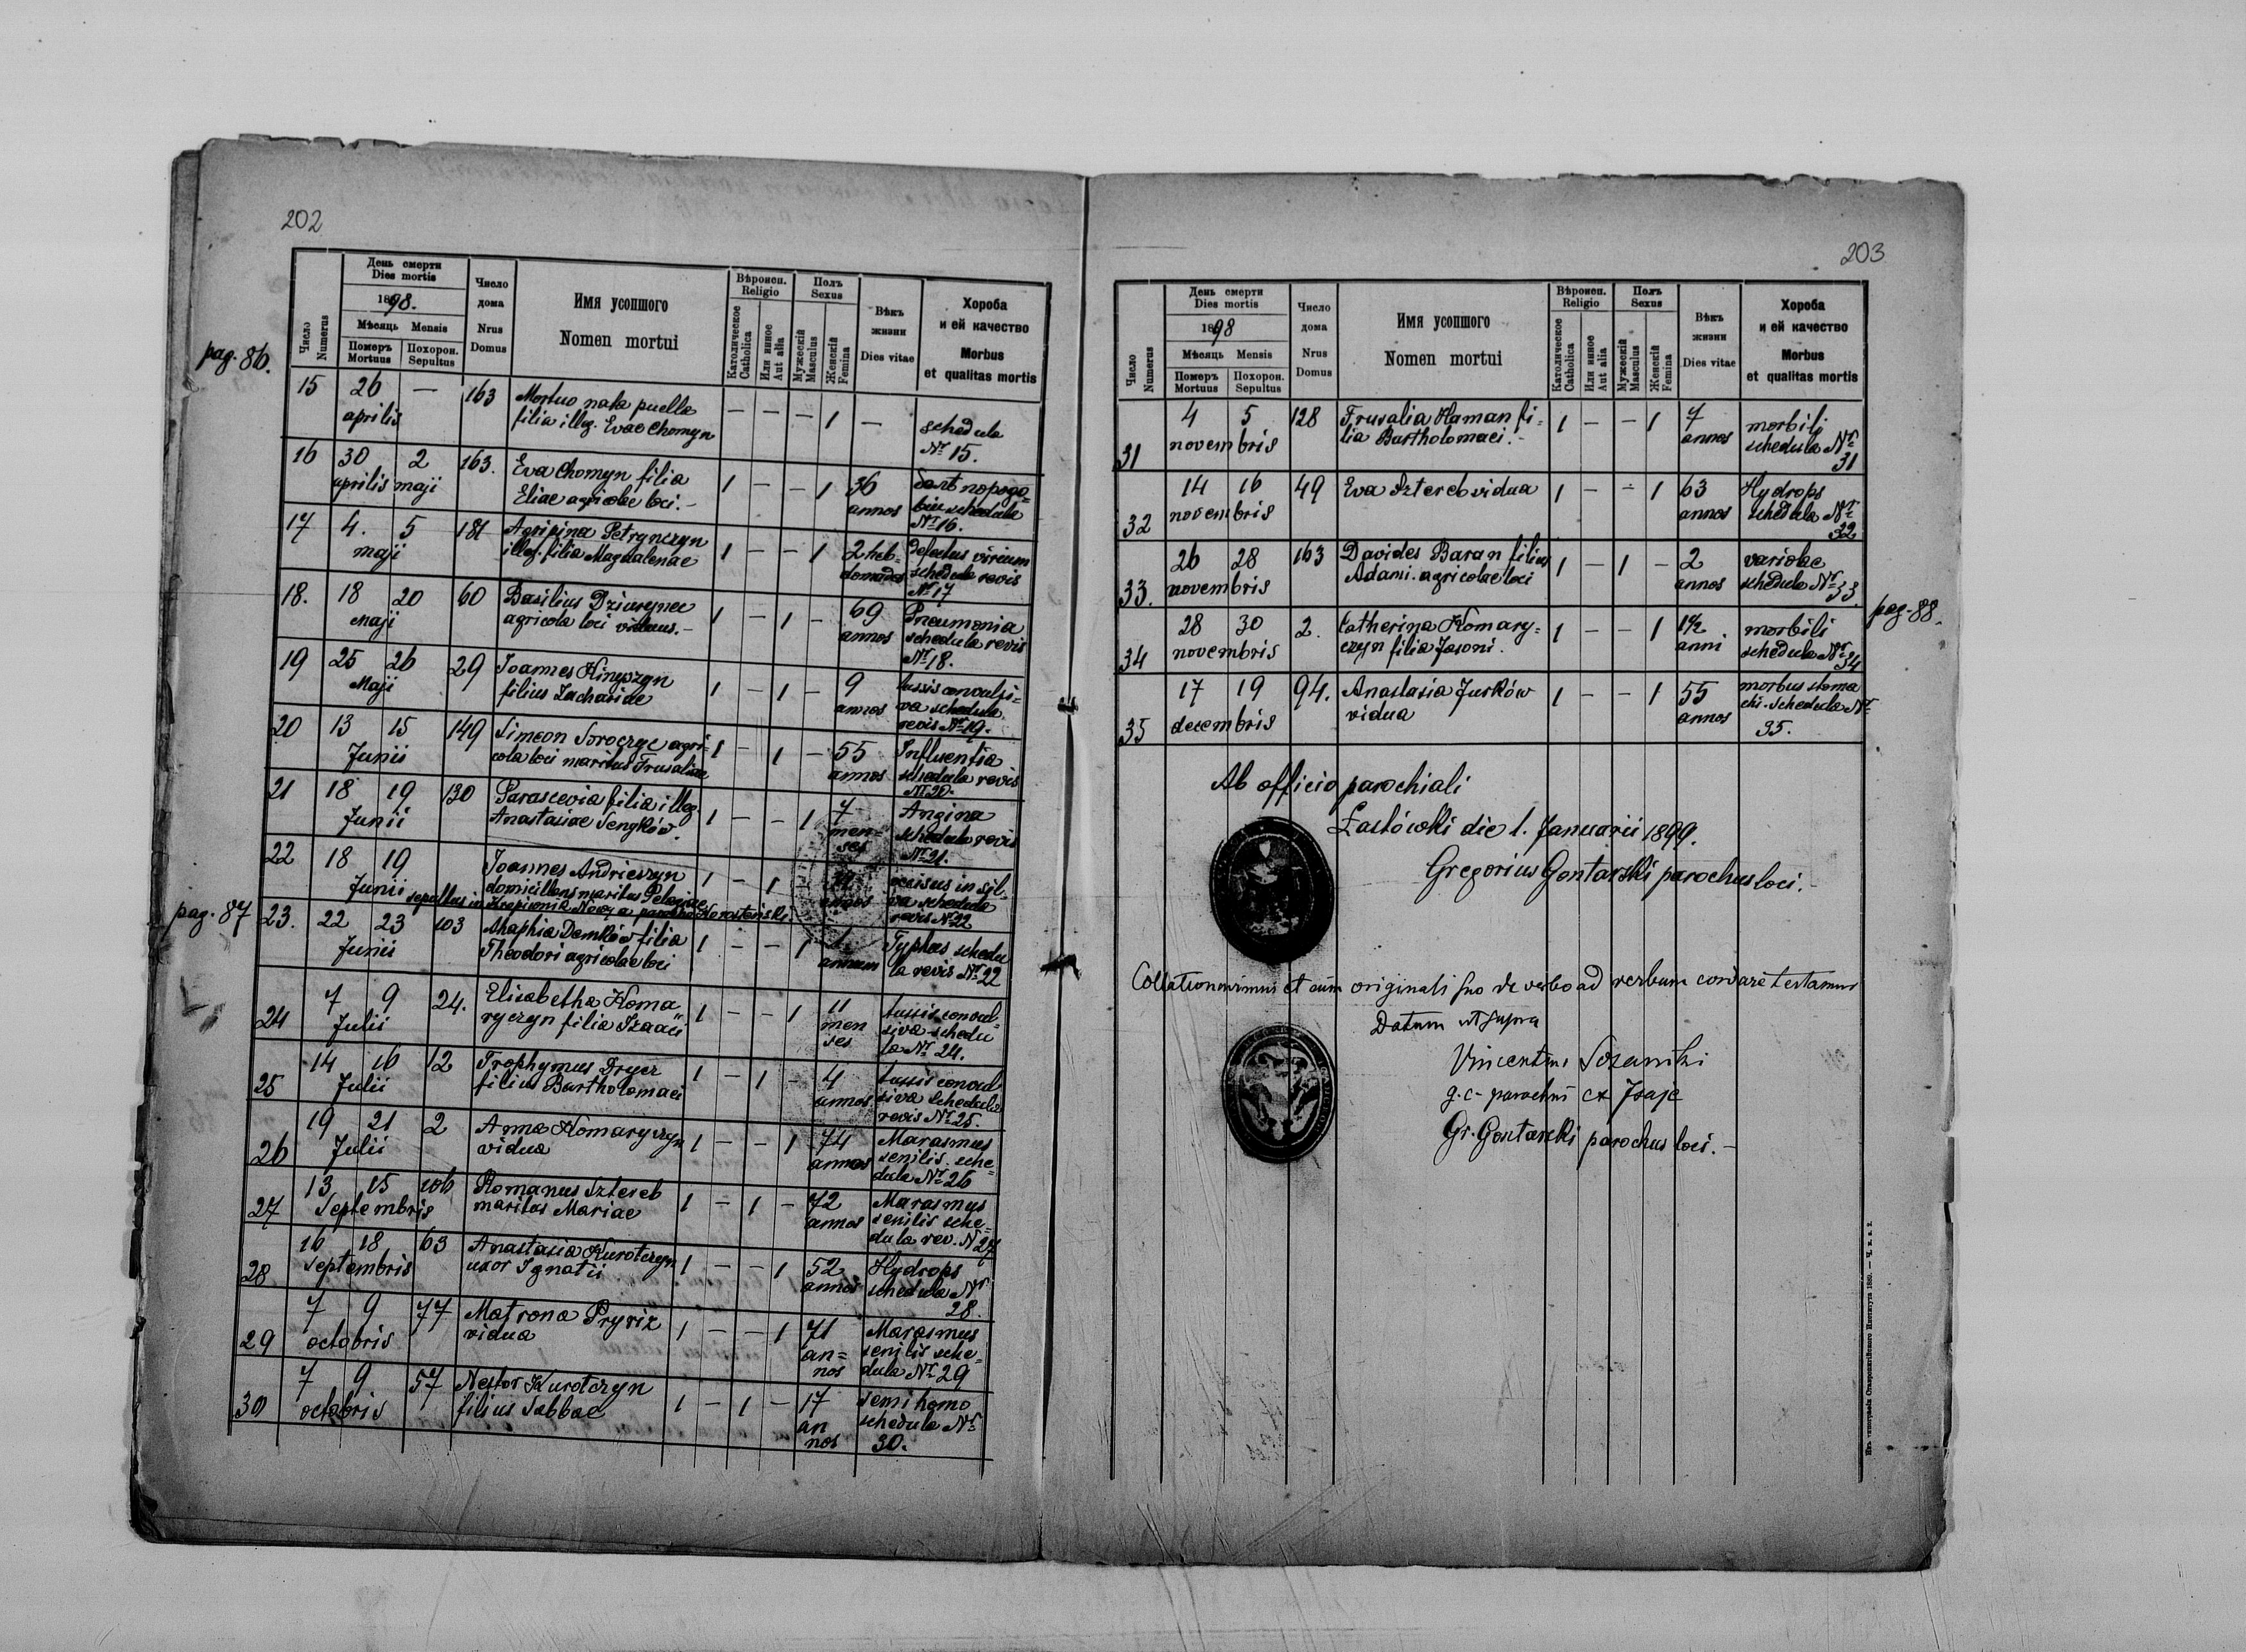 202
День смерти
Dies mortis
1898.
Мѣсяць Mensis
Померъ
Mortuus
Похорон.
Sepultus
Число
Numerus
Число
дома
Nrus
Domus
Имя усопшого
Nomen mortui
Вѣроисп.
Religio
Католическое
Catholica
Или инное
Aut alia
Полъ
Sexus
Мужескій
Masculus
Женскій
Femina
Вѣкъ
жизни
Dies vitae
Хороба
и ей качество
Morbus
et qualitas mortis
pag. 86.
15 26 — 163 Mortuo nata puella — — — 1 — schedula
aprilis filia illeg. Evae Chomyn Nr 15.
16 30 2 163. Eva Chomyn filia 1 — — 1 36
aprilis maji Eliae agricolae loci.- annos schedula
Nr 16.
17 4. 5 181 Agripina Petrynczyn 1 — — 1 2 heb= Defectus virium
maji illeg. filia Magdalenae domadas schedula revis
Nr 17
18. 18 20 60 Basilius 1 — 1 — 69 Pneumonia
Maji agricola loci viduus.- annos schedula revis
Nr 18.
19 25 26 29 Joannes 1 — 1 — 9 tussis convulsi=
Maji filius Zachariae annos va schedula
revis Nr 19.
20 13 15 149 Simeon agri= 1 — 1 — 55 Influentia
Junii cola loci maritus Frusaliae annos schedula revis
Nr 20.
21 18 19 130 Parascevia filia illeg. 1 — — 1 7 Angina
Junii Anastasiae Sengków. men= schedula revis
ses Nr 21.
22 18 19 Joannes Andrieszyn 1 — 1 — occisus in sil=
Junii domicilians maritus Pelagiae annos va schedula
sepultus in a parocho revis Nr 22
pag. 87
23. 22 23 103 Ahaphia Demków filia 1 — — 1 1 Typhus schedu
Junii Theodori agricolae loci annum la revis Nr 22
24 7 9 24. Elisabetha Koma= 1 — — 1 11 tussis convul=
Julii ryczyn filia Izaaci men siva schedu
ses la Nr 24.
25 14 16 12 Trophymus Dryer 1 — 1 — 4 tussis convul=
Julii filius Bartholomaei annos siva schedula
revis Nr 25.
26 19 21 2 Anna Komaryczyn 1 — — 1 74 Marasmus
Julii vidua annos senilis sche=
dula Nr 26
27 13 15 106 Romanus Sztereb 1 — 1 — 72 Marasmus
Septembris maritus Mariae annos senilis sche=
dula rev. N 27
28 16 18 63 Anastasia Kurotczyn 1 — — 1 52 Hydrops
Septembris uxor Ignatii annos schedula Nr
28.
29 7 9 77 Matrona Pryriz 1 — — 1 71 Marasmus
octobris vidua an= senilis sche=
nos dula Nr 29
30 7 9 57 Nestor Kurotczyn 1 — 1 — 17 semihomo
octobris filius Sabbae an schedula Nr
nos 30.
203
День смерти
Dies mortis
1898
Мѣсяць Mensis
Померъ
Mortuus
Похорон.
Sepultus
Число
Numerus
Число
дома
Nrus
Domus
Имя усопшого
Nomen mortui
Вѣроисп.
Religio
Католическое
Catholica
Или инное
Aut alia
Полъ
Sexus
Мужескій
Masculus
Женскій
Femina
Вѣкъ
жизни
Dies vitae
Хороба
и ей качество
Morbus
et qualitas mortis
31 4 5 128 Frusalia Haman fi= 1 — — 1 7 morbili
novembris lia Bartholomaei.- annos schedula Nr
31
32 14 16 49 Eva Sztereb vidua 1 — — 1 63 Hydrops
novembris annos schedula Nr
32
33. 26 28 163 Davides Baran filius 1 — 1 — 2 variolae
novembris Adami agricolae loci annos schedula Nr 33.
pag. 88.
34 28 30 2. Catherina Komary= 1 — — 1 1 1/2 morbili
novembris czyn filia Jasoni. anni schedula Nr 34
35 17 19 94. Anastasia Jurków 1 — — 1 55 morbus stoma
decembris vidua annos chi. schedula Nr
35.
Ab officio parochiali
Łastówki die 1. Januarii 1899.
Gregorius Gontarski parochus loci.-
Collationavimus et cum originali suo de verbo ad verbum testamur
Datum ut supra
Vincentius
g.c. parochus ex Isaje
Gr. Gontarski parochus loci.-